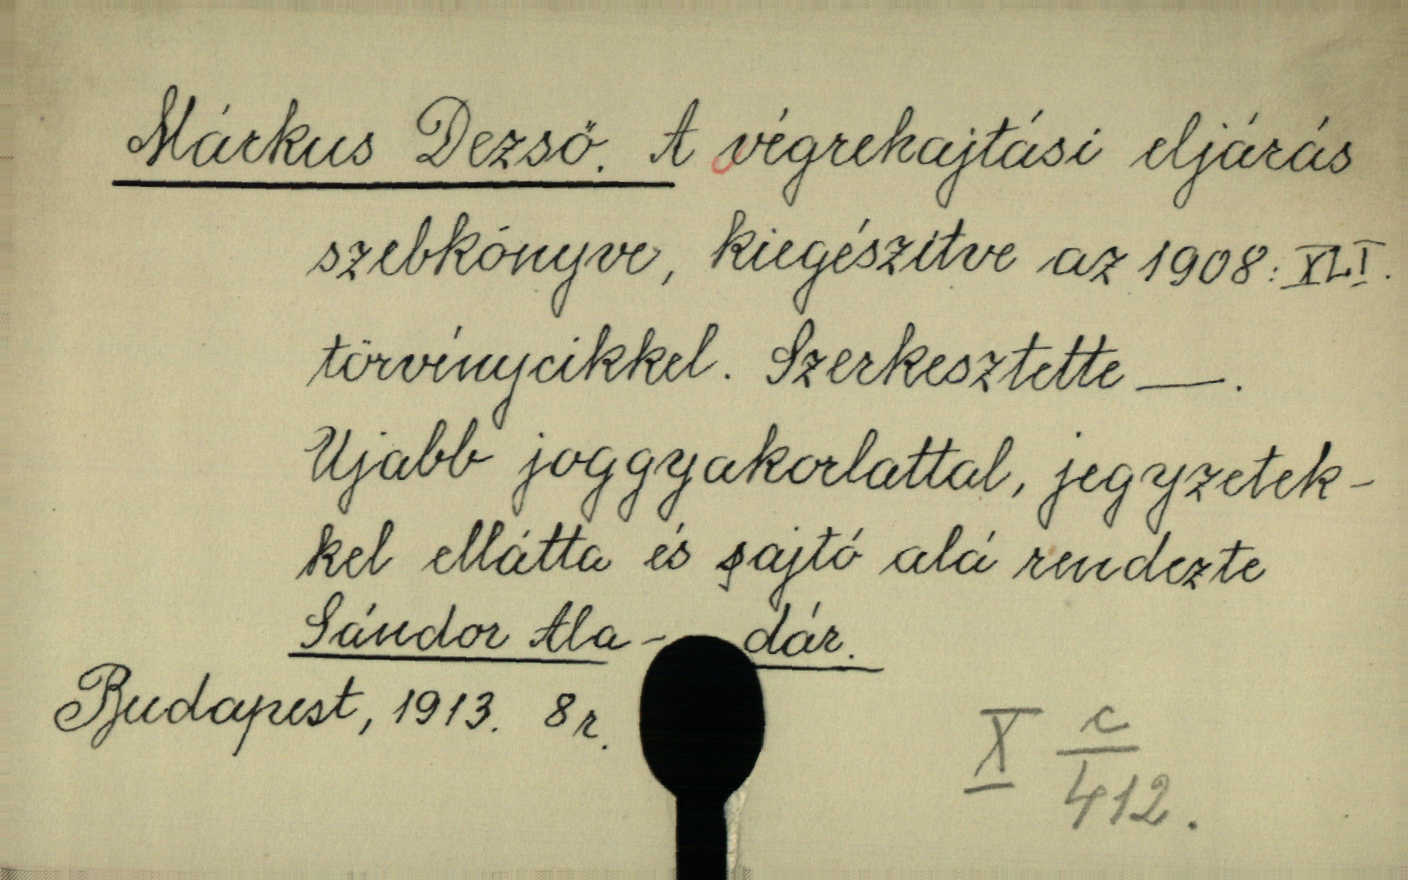 Márkus Dezső. A végrehajtási eljárás
szebkönyve, kiegészítve az 1908: XLI.
törvénycikkel. Szerkesztette —.
Ujabb joggyakorlattal, jegyzetek-
kel ellátta és sajtó alá rendezte
Sándor Ala- dár.
Budapest, 1913. 8r.
X c
412.